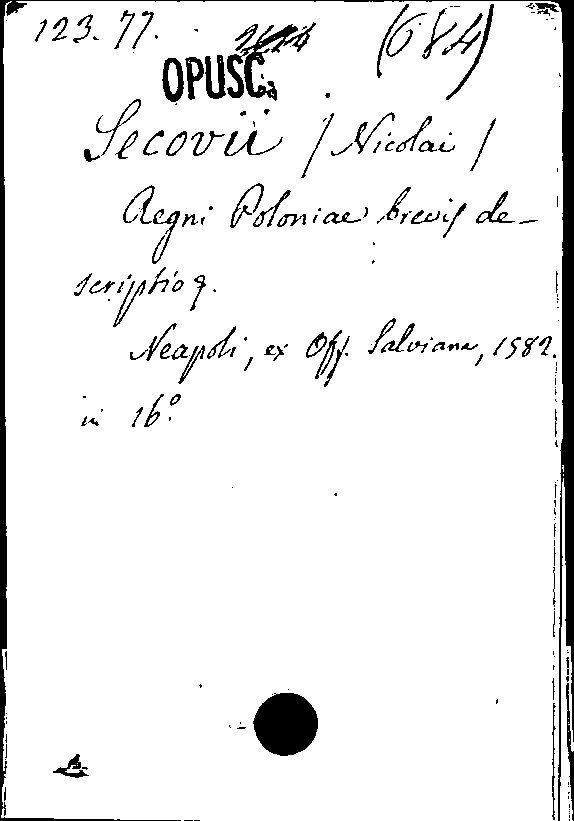 123. 77. (684)
OPUSC.a
Secovii / Nicolai /
Regni Poloniae brevis de-
scriptio
Neapoli, ex Off. Salviana, 1582.
in 16º